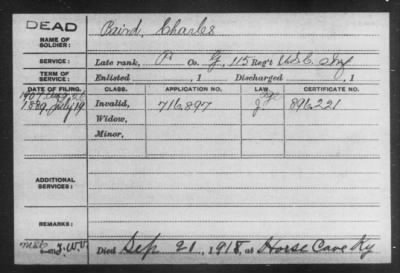 DEAD
NAME OF SOLDIER: Baird, Charles
SERVICE: Late rank, P Co. G, 115 Reg't U.S.C. Inf
TERM OF SERVICE: Enlisted , 1 Discharged , 1
DATE OF FILING. CLASS. APPLICATION NO. LAW. CERTIFICATE NO.
1907
1889, July 19 Invalid, 716.897 896.221
Widow,
Minor,
ADDITIONAL SERVICES:
REMARKS:
Died Sep 21, 1918, at Horse Cave Ky